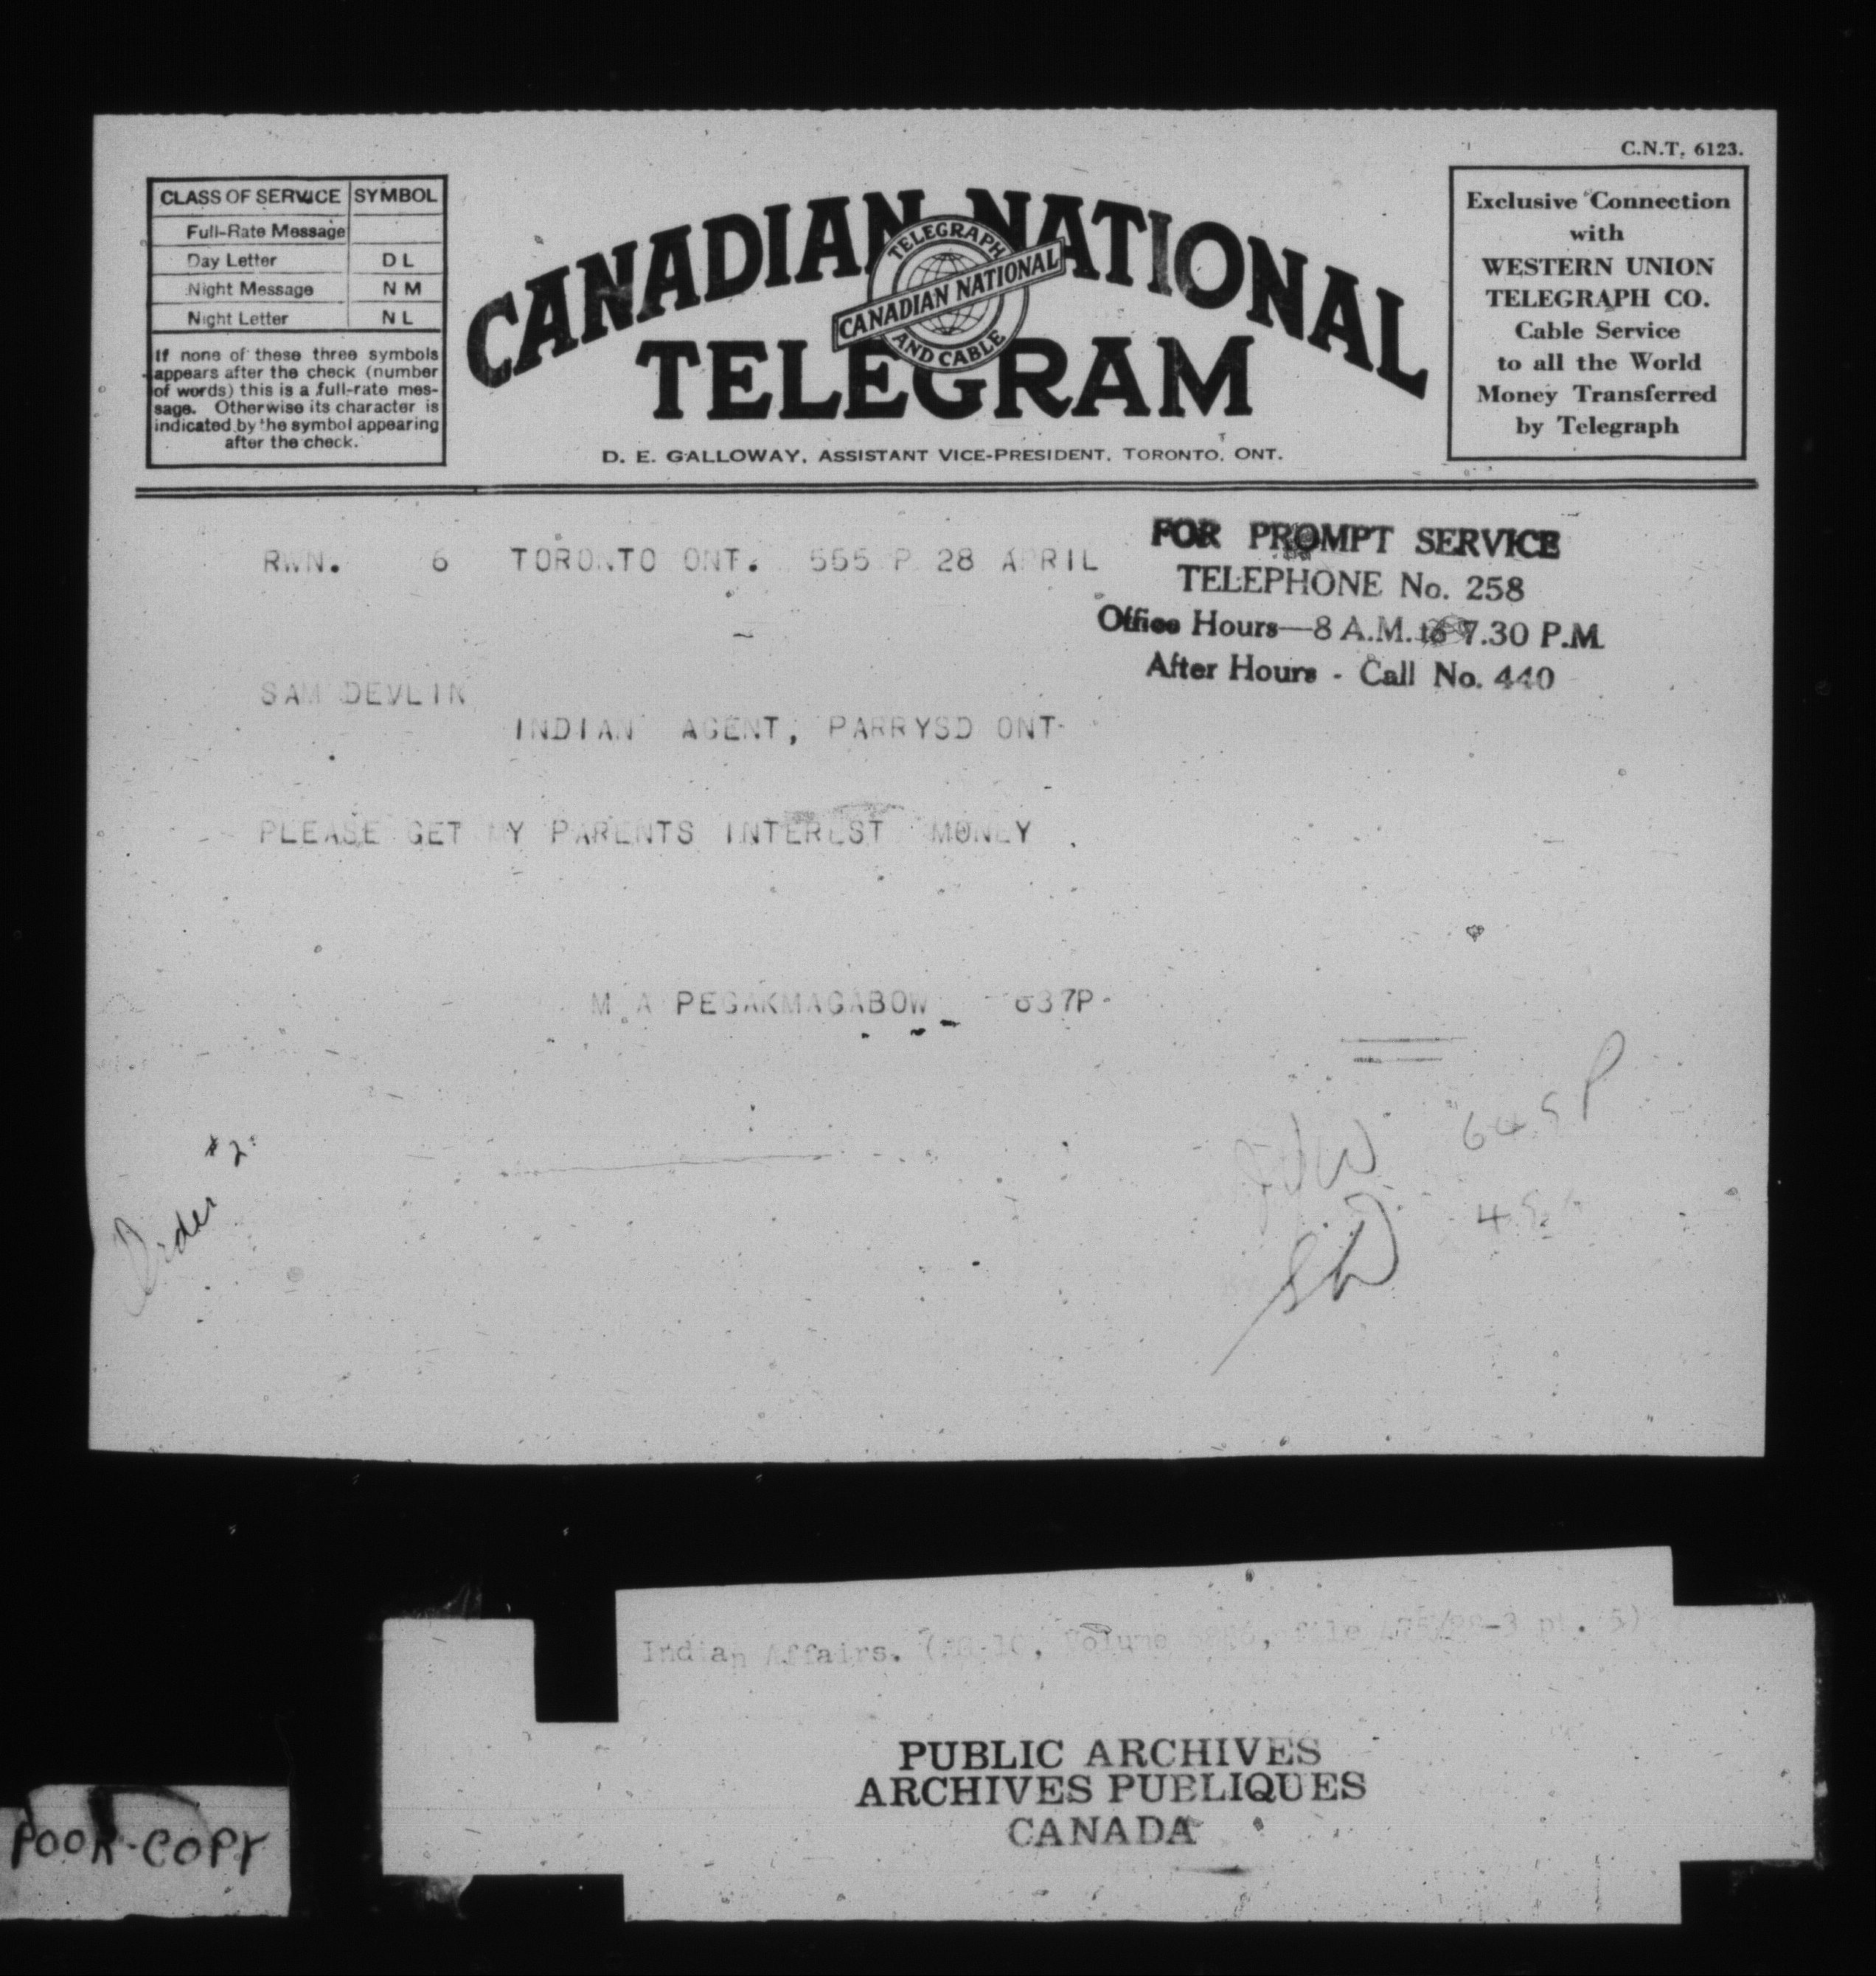 C.N.T. 6123.
CLASS OF SERVICE SYMBOL
Full-Rate Message
Day Letter D L
Night Message N M
Night Letter N L
If none of these three symbols
appears after the check (number
of words) this is a full-rate mes-
sage. Otherwise its character is
indicated by the symbol appearing
after the check.
CANADIAN NATIONAL
TELEGRAPH
CANADIAN NATIONAL
AND CABLE
TELEGRAM
D. E. GALLOWAY, ASSISTANT VICE-PRESIDENT, TORONTO, ONT.
Exclusive Connection
with
WESTERN UNION
TELEGRAPH CO.
Cable Service
to all the World
Money Transferred
by Telegraph
RWN. 6 TORONTO ONT. 555 P 28 APRIL
FOR PROMPT SERVICE
TELEPHONE No. 258
Office Hours—8 A.M. to 7.30 P.M.
After Hours - Call No. 440
SAM DEVLIN
INDIAN AGENT, PARRYSD ONT
PLEASE GET MY PARENTS INTEREST MONEY .
M A PEGAKMAGABOW 637P
645P
Order #2
SD
Indian Affairs. (RG 10, Volume file pt. 5)
PUBLIC ARCHIVES
ARCHIVES PUBLIQUES
CANADA
POOR COPY